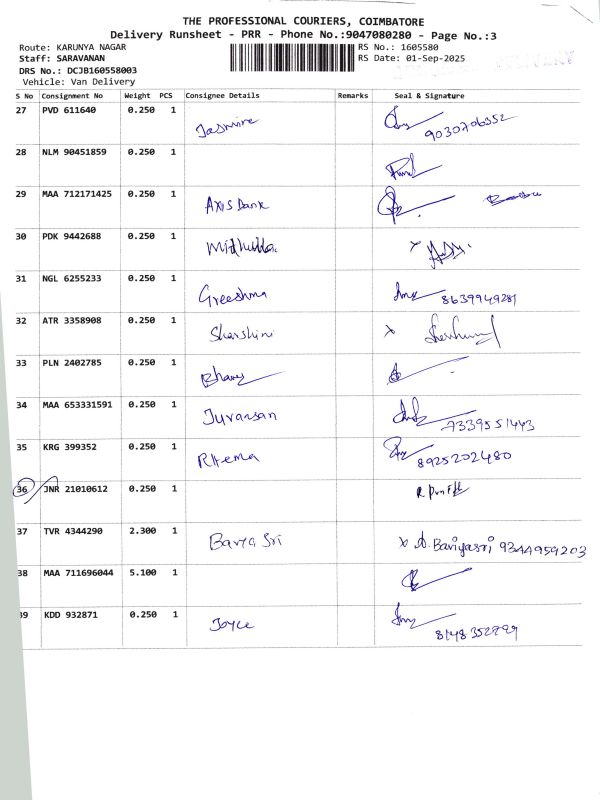 THE PROFESSIONAL COURIERS, COIMBATORE
Delivery Runsheet - PRR - Phone No.:9047080280 - Page No.:3
Route: KARUNYA NAGAR RS No.: 1605580
Staff: SARAVANAN RS Date: 01-Sep-2025
DRS No.: DCJB160558003
Vehicle: Van Delivery
S No Consignment No Weight PCS Consignee Details Remarks Seal & Signature
27 PVD 611640 0.250 1 Jasmine 9030706352
28 NLM 90451859 0.250 1
29 MAA 712171425 0.250 1 AXIS Bank
30 PDK 9442688 0.250 1
31 NGL 6255233 0.250 1 Greeshma 8639949281
32 ATR 3358908 0.250 1 Sharshini x
33 PLN 2402785 0.250 1
34 MAA 653331591 0.250 1 Juvansan 7339551443
35 KRG 399352 0.250 1 Rhema 8925202480
36 JNR 21010612 0.250 1
37 TVR 4344290 2.300 1 Barya Sri x A. Bariyasri 9344959203
38 MAA 711696044 5.100 1
39 KDD 932871 0.250 1 Joyce 8148352799